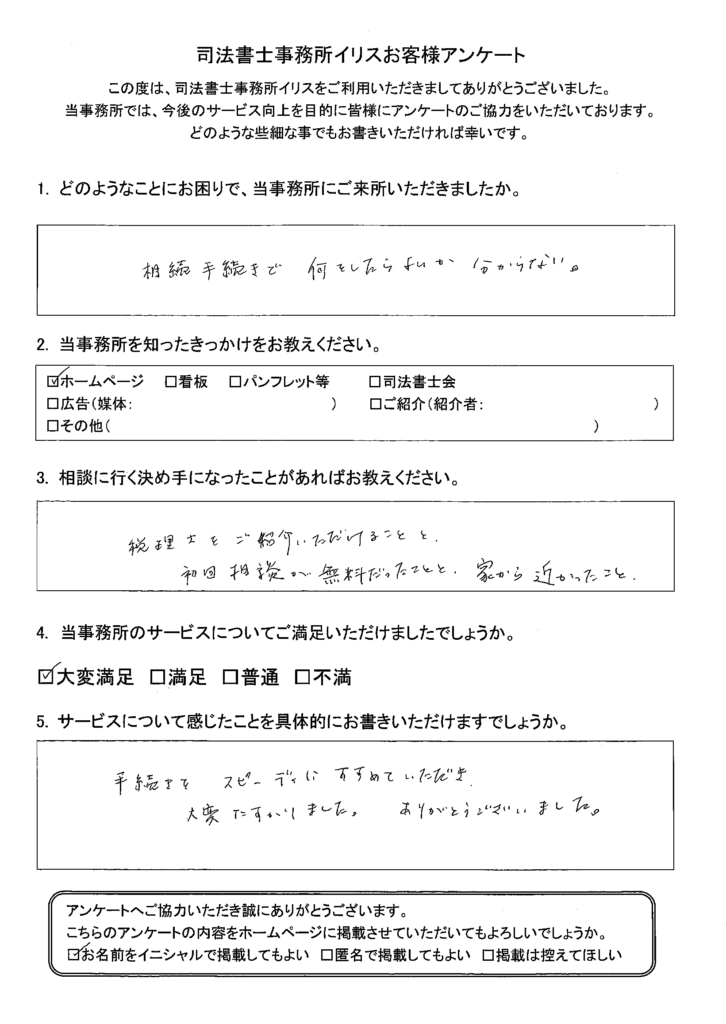 司法書士事務所イリスお客様アンケート
この度は、司法書士事務所イリスをご利用いただきましてありがとうございました。
当事務所では、今後のサービス向上を目的に皆様にアンケートのご協力をいただいております。
どのような些細な事でもお書きいただければ幸いです。
1. どのようなことにお困りで、当事務所にご来所いただきましたか。
相続手続きで 何をしたらよいか 分からない。
2. 当事務所を知ったきっかけをお教えください。
☑ホームページ □看板 □パンフレット等 □司法書士会
□広告(媒体: ) □ご紹介(紹介者: )
□その他( )
3. 相談に行く決め手になったことがあればお教えください。
税理士をご紹介いただけることと、
初回相談が無料だったことと、家から近かったこと、
4. 当事務所のサービスについてご満足いただけましたでしょうか。
☑大変満足 □満足 □普通 □不満
5. サービスについて感じたことを具体的にお書きいただけますでしょうか。
手続きを スピーディに すすめていただき、
大変たすかりました。 ありがとうございいました。
アンケートへご協力いただき誠にありがとうございます。
こちらのアンケートの内容をホームページに掲載させていただいてもよろしいでしょうか。
☑お名前をイニシャルで掲載してもよい □匿名で掲載してもよい □掲載は控えてほしい